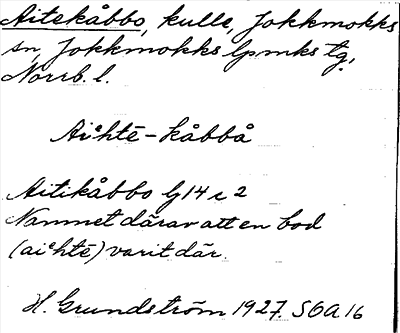 Aitekåbbo, kulle, Jokkmokks
sn, Jokkmokks lpmks tg,
Norrb. l.
Aiͨhtē-kåbbå
Aitikåbbo bj 14 c 2
Namnet därav att en bod
(aiͨhtē) varit där.
H. Grundström 1927. SOA 16